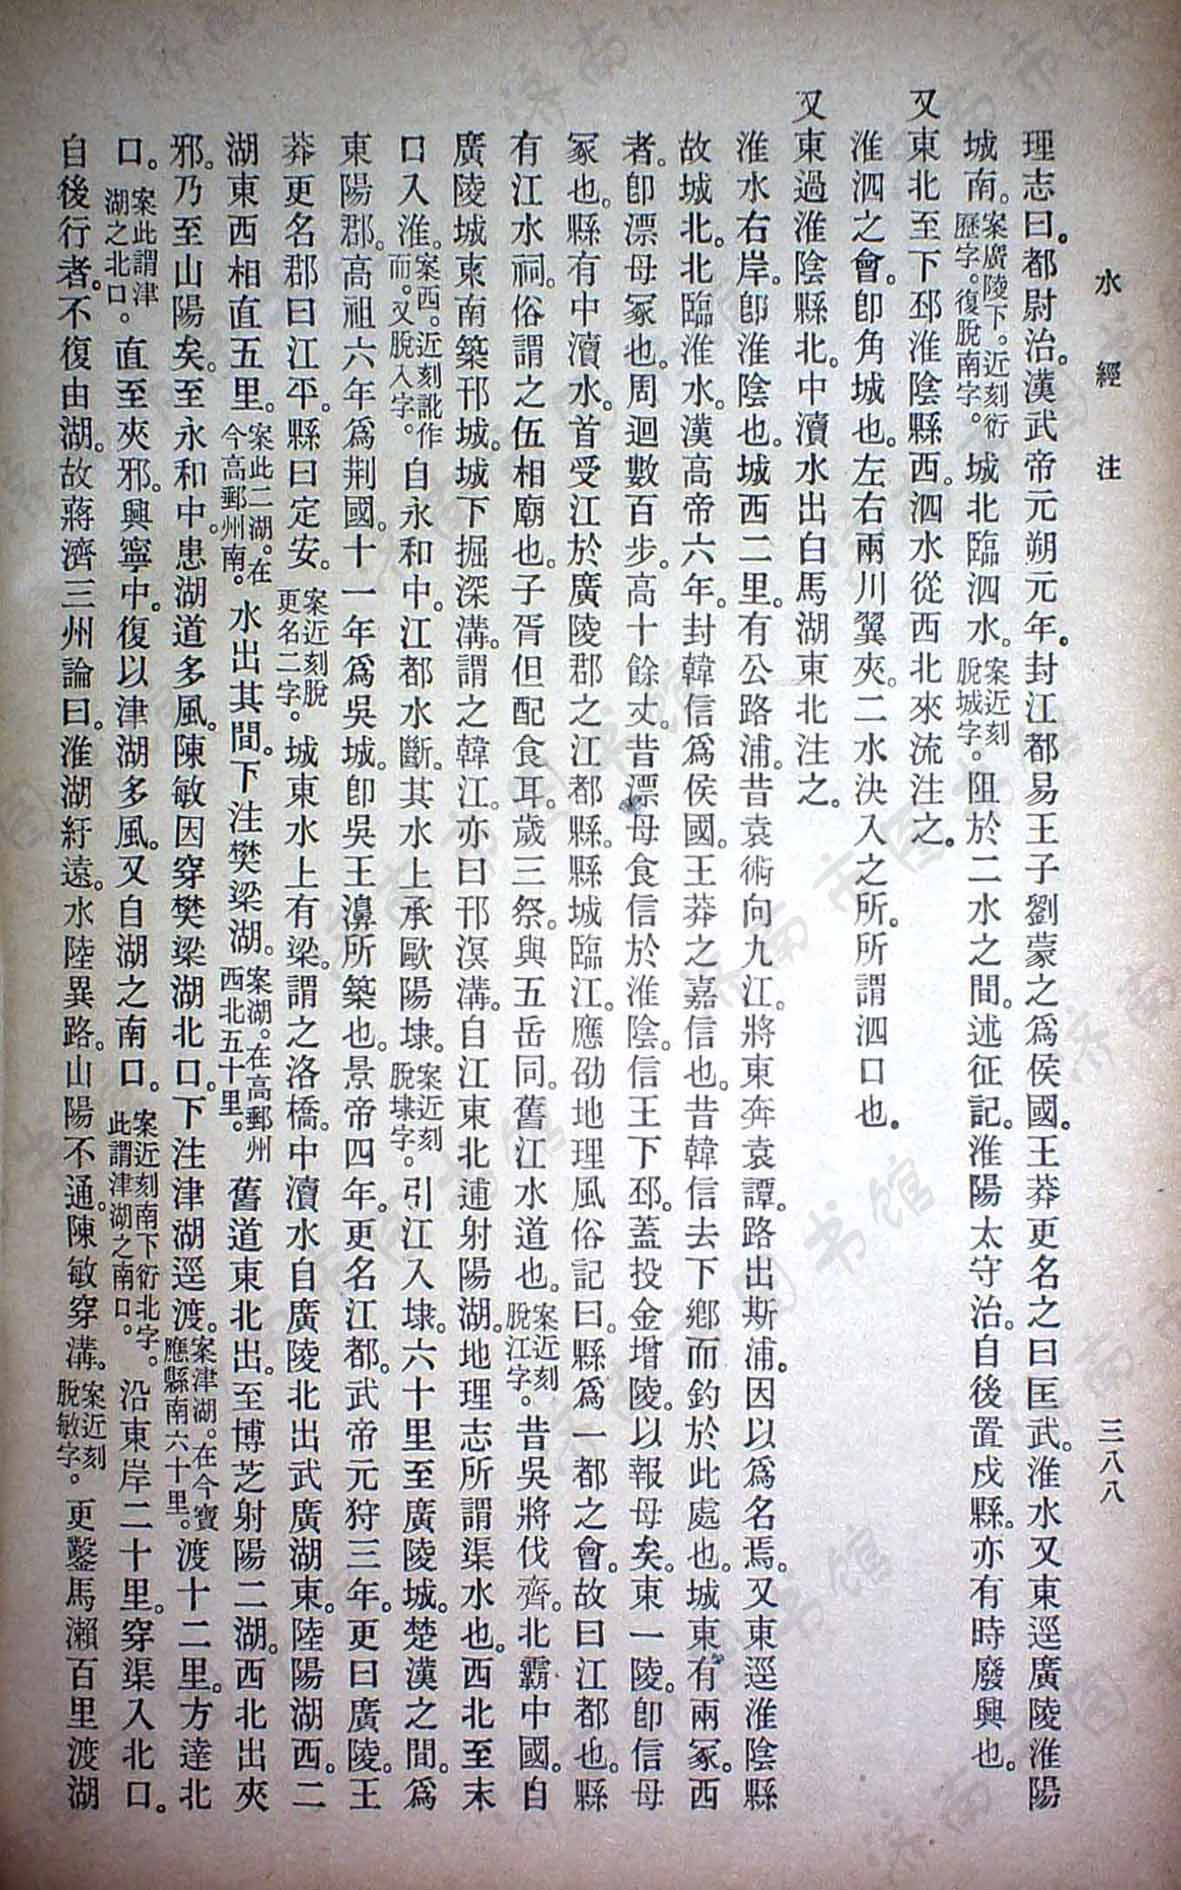 水經注
三八八
理志曰。都尉治。漢武帝元朔元年。封江都易王子劉蒙之爲侯國。王莽更名之曰匡武。淮水又東逕廣陵淮陽
城南。案廣陵下。近刻衍歷字。復脫南字。城北臨泗水。案近刻脫城字。阻於二水之間。述征記。淮陽太守治。自後置戍縣。亦有時廢興也。
又東北至下邳淮陰縣西。泗水從西北來流注之。
淮泗之會。卽角城也。左右兩川翼夾。二水決入之所。所謂泗口也。
又東過淮陰縣北。中瀆水出白馬湖東北注之。
淮水右岸。卽淮陰也。城西二里。有公路浦。昔袁術向九江。將東奔袁譚。路出斯浦。因以爲名焉。又東逕淮陰縣
故城北。北臨淮水。漢高帝六年。封韓信爲侯國。王莽之嘉信也。昔韓信去下鄉而釣於此處也。城東有兩冢。西
者。卽漂母冢也。周迴數百步。高十餘丈。昔漂母食信於淮陰。信王下邳。蓋投金增陵。以報母矣。東一陵。卽信母
冢也。縣有中瀆水。首受江於廣陵郡之江都縣。縣城臨江。應劭地理風俗記曰。縣爲一都之會。故曰江都也。縣
有江水祠。俗謂之伍相廟也。子胥但配食耳。歲三祭。與五岳同。舊江水道也。案近刻脫江字。昔吳將伐齊。北霸中國。自
廣陵城東南築邗城。城下掘深溝。謂之韓江。亦曰邗溟溝。自江東北通射陽湖。地理志所謂渠水也。西北至末
口入淮。案西。近刻訛作而。又脫入字。自永和中。江都水斷。其水上承歐陽埭。案近刻脫埭字。引江入埭。六十里至廣陵城。楚漢之間。爲
東陽郡。高祖六年爲荆國。十一年爲吳城。卽吳王濞所築也。景帝四年。更名江都。武帝元狩三年。更曰廣陵。王
莽更名郡曰江平。縣曰定安。案近刻脫更名二字。城東水上有梁。謂之洛橋。中瀆水自廣陵北出武廣湖東。陸陽湖西。二
湖東西相直五里。案此二湖。在今高郵州南。水出其間。下注樊梁湖。案湖。在高郵州西北五十里。舊道東北出。至博芝射陽二湖。西北出夾
邪。乃至山陽矣。至永和中。患湖道多風。陳敏因穿樊梁湖北口。下注津湖逕渡。案津湖。在今寶應縣南六十里。渡十二里。方達北
口。案此謂津湖之北口。直至夾邪。興寧中。復以津湖多風。又自湖之南口。案近刻南下衍北字。此謂津湖之南口。沿東岸二十里。穿渠入北口。
自後行者。不復由湖。故蔣濟三州論曰。淮湖紆遠。水陸異路。山陽不通。陳敏穿溝。案近刻脫敏字。更鑿馬瀨百里渡湖